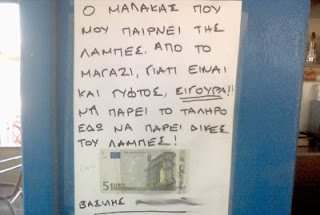 Ο ΜΑΛΑΚΑΣ ΠΟΥ
ΜΟΥ ΠΑΙΡΝΕΙ ΤΗΣ
ΛΑΜΠΕΣ. ΑΠΟ ΤΟ
ΜΑΓΑΖΙ, ΓΙΑΤΙ ΕΙΝΑΙ
ΚΑΙ ΓΥΦΤΟΣ, ΕΙΓΟΥΡΑ!!
ΝΑ ΠΑΡΕΙ ΤΟ ΤΑΛΗΡΟ
ΕΔΩ ΝΑ ΠΑΡΕΙ ΔΙΚΕΣ
ΤΟΥ ΛΑΜΠΕΣ!
5 EURO
ΒΑΣΙΛΗΣ